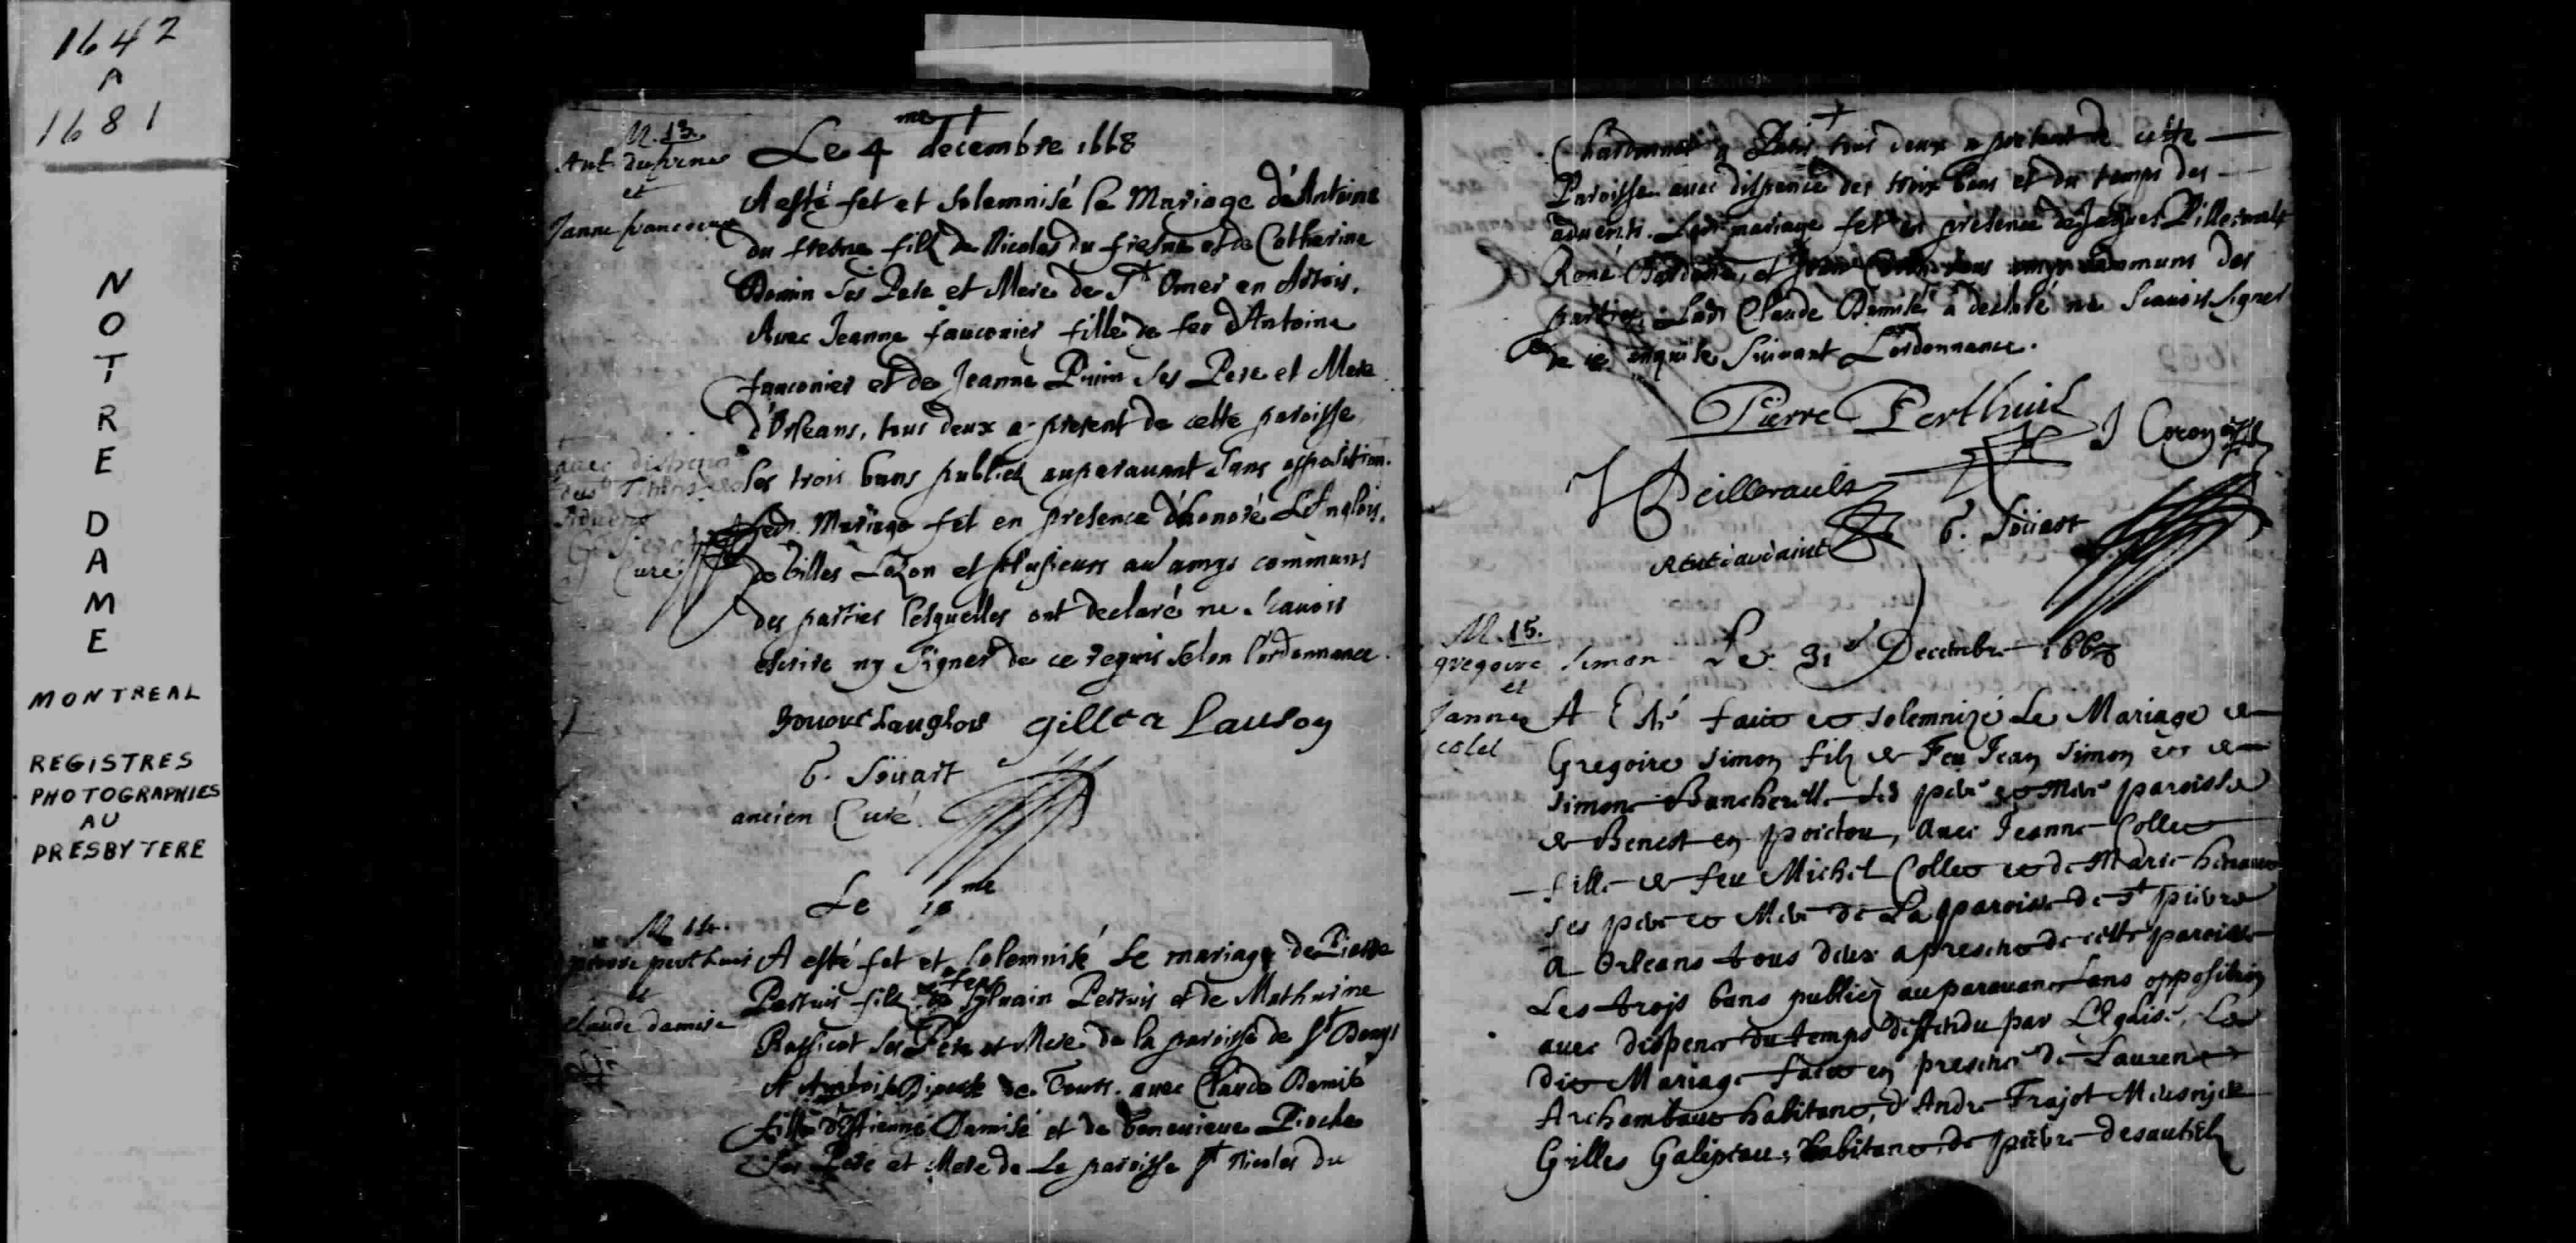 1642
A
1681
NOTRE
DAME
MONTREAL
REGISTRES
PHOTOGRAPHIES
AU
PRESBYTERE
M. 13.
et
Le 4me décembre 1668
A esté fet et solemnisé le Mariage d'Antoine
du fresne filz de Nicolas du fresne et de Catherine
ses Pere et Mere de St Omer en Artois.
Avec Jeanne fauconier fille de feu d'Antoine
fauconier et de Jeanne ses Pere et Mere
d'Orleans, tous deux a present de cette paroisse
les trois bans publiez auparavant sans opposition.
Led. Mariage fet en presence d'honoré L'Anglois,
de Gilles Lozon et plusieurs au amys communs
des parties lesquelles ont declaré ne scavoir
escrire ny signer de ce requis selon l'ordonnance.
avec
Curé
honoré Langlois gilles Lauson
G. Soüart
ancien Curé
Le 10me
M 14.
pierre perthuis
et
claude damise
A esté fet et solemnisé le mariage de Pierre
Pertuis filz de feu Sylvain Pertuis et de Mathurine
ses Pere et Mere de la paroisse de St Denys
A Amboise de Tours. avec Claude Damisé
fille d'Estienne Damisé et de Genevieve Pioche
ses Pere et Mere de la paroisse St Nicolas du
Chardonnet a Paris tous deux a present de cette
Paroisse avec dispence des trois bans et du temps des
advents. Led. mariage fet en presence de Jaques
René et communs des
parties. Lad. Claude Damisé a declaré ne scavoir signer
de ce enquise suivant L'ordonnance.
Pierre Perthuis
Peillerault
G. Soüart
M. 15.
gregoire simon
et
Janne
colet
Le 31e Decembre 1668
A Esté faict et solemnizé Le Mariage de
Gregoire Simon filz de Feu Jean Simon et de
Simone ses pere et Mere paroisse
de Benest en poictou, avec Jeanne Collet
fille de feu Michel Collet et de Marie
ses pere et Mere de La paroisse de St pierre
a Orleans tous deux a present de cette paroisse
Les trois bans publiez auparavant sans opposition
avec dispence du temps deffendu par L'Eglise, Le
dit Mariage faict en presence de Laurent
Archambaut habitant, d'André Trajot
Gilles Galipeau, habitant, de pierre desautels